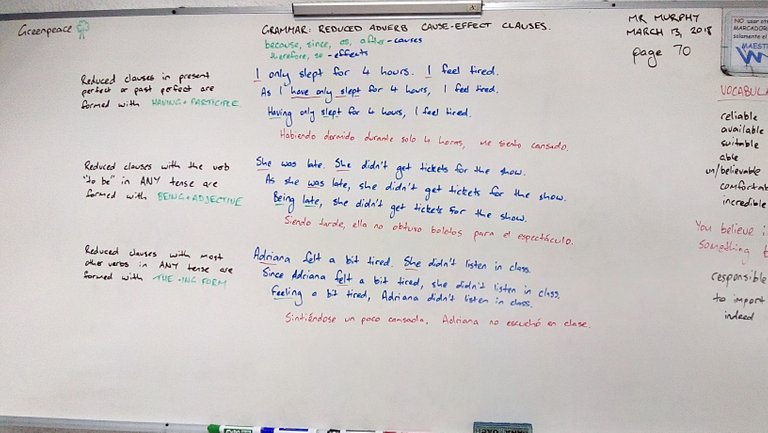 Greenpeace
GRAMMAR: REDUCED ADVERB CAUSE-EFFECT CLAUSES.
because, since, as, after - causes
therefore, so - effects
MR MURPHY
MARCH 13, 2018
page 70
NO usar otr
MARCADOR
solamente el
MAESTR
W
Reduced clauses in present
perfect or past perfect are
formed with HAVING + PARTICIPLE.
I only slept for 4 hours. I feel tired.
As I have only slept for 4 hours, I feel tired.
Having only slept for 4 hours, I feel tired.
Habiendo dormido durante solo 4 horas, me siento cansado.
Reduced clauses with the verb
"to be" in ANY tense are
formed with BEING + ADJECTIVE
She was late. She didn't get tickets for the show.
As she was late, she didn't get tickets for the show.
Being late, she didn't get tickets for the show.
Siendo tarde, ella no obtuvo boletos para el espectáculo.
Reduced clauses with most
other verbs in ANY tense are
formed with THE -ING FORM
Adriana felt a bit tired. She didn't listen in class.
Since Adriana felt a bit tired, she didn't listen in class.
Feeling a bit tired, Adriana didn't listen in class.
Sintiéndose un poco cansada, Adriana no escuchó en clase.
VOCABULA
reliable
available
suitable
able
un/believable
comfortab
incredible
You believe i
something
responsible
to import
indeed